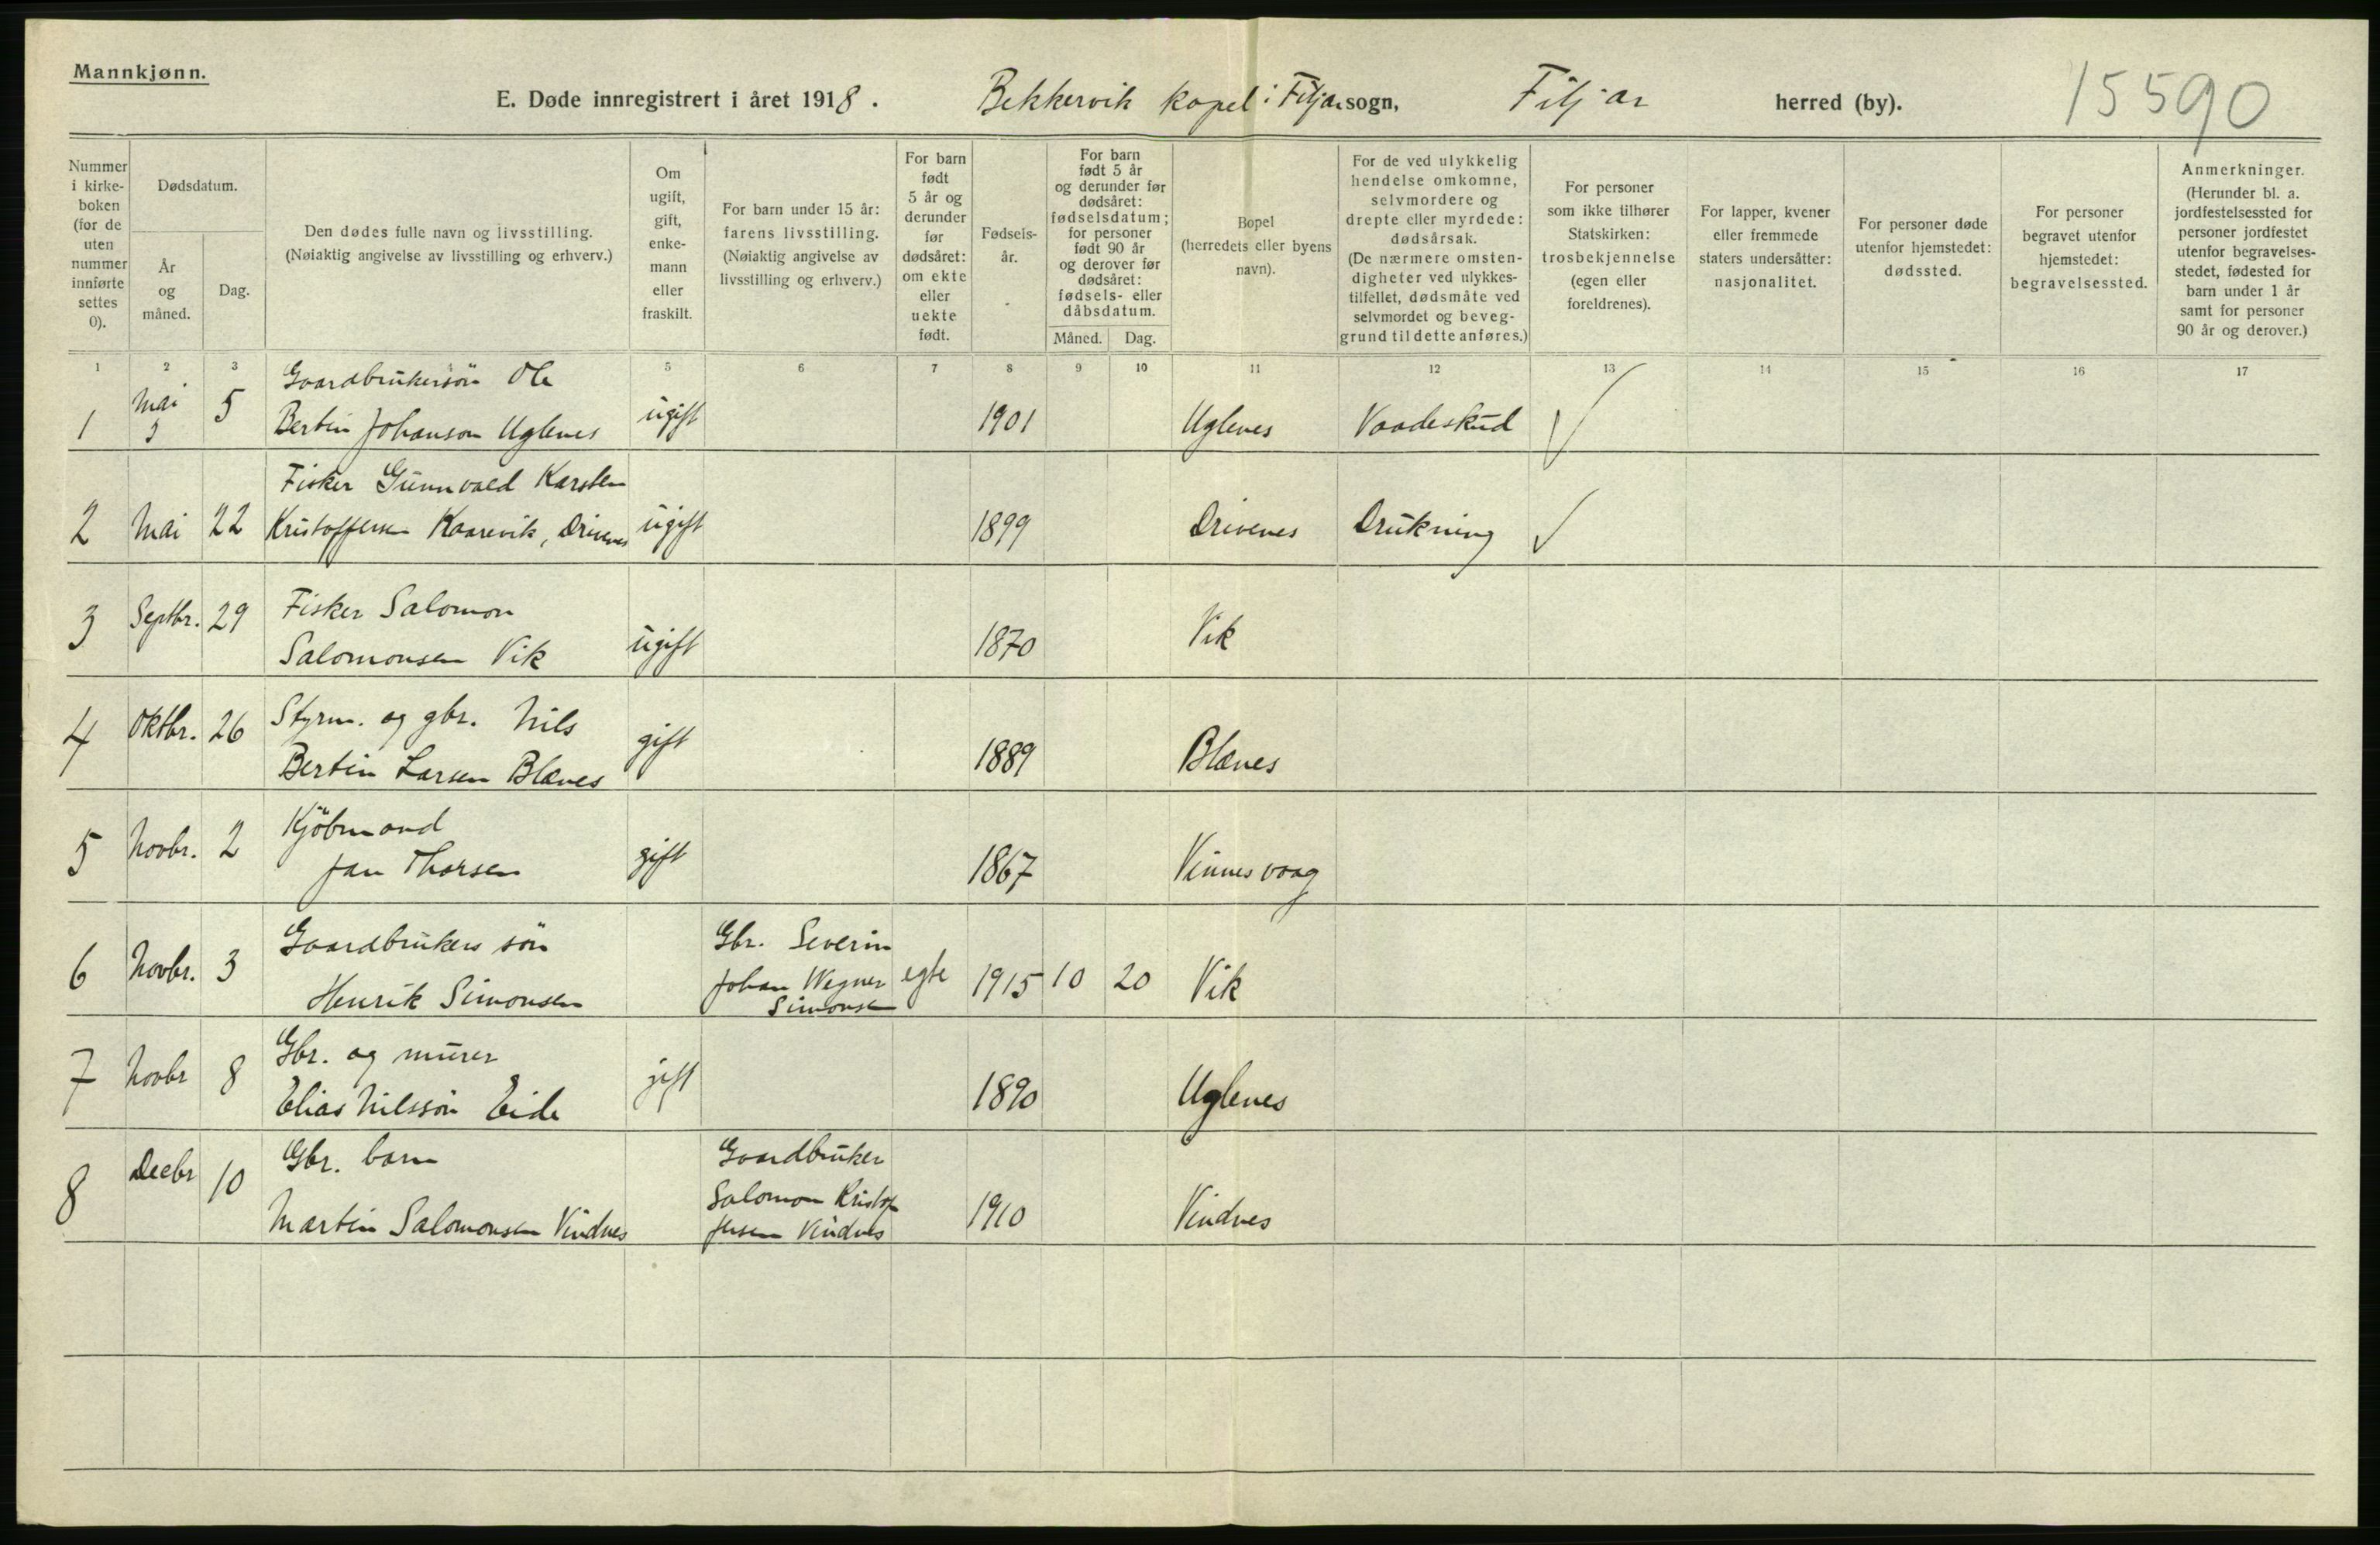 Mannkjønn.
E. Døde innregistrert i året 1918. Bekkervik kapel i Fitjar sogn, Fitjar herred (by). 15590
Nummer i kirke-boken (for de uten nummer innførte settes 0).
Dødsdatum.
År og måned.
Dag.
Den dødes fulle navn og livsstilling.
(Nøiaktig angivelse av livsstilling og erhverv.)
Om ugift, gift, enke-mann eller fraskilt.
For barn under 15 år: farens livsstilling. (Nøiaktig angivelse av livsstilling og erhverv.)
For barn født 5 år og derunder før dødsåret: om ekte eller uekte født.
Fødsels-år.
For barn født 5 år og derunder før dødsåret: fødselsdatum; for personer født 90 år og derover før dødsåret: fødsels- eller dåbsdatum.
Måned. Dag.
Bopel (herredets eller byens navn).
For de ved ulykkelig hendelse omkomne, selvmordere og drepte eller myrdede: dødsårsak. (De nærmere omsten-digheter ved ulykkes-tilfellet, dødsmåte ved selvmordet og beveg-grund til dette anføres.)
For personer som ikke tilhører Statskirken: trosbekjennelse (egen eller foreldrenes).
For lapper, kvener eller fremmede staters undersåtter: nasjonalitet.
For personer døde utenfor hjemstedet: dødssted.
For personer begravet utenfor hjemstedet: begravelsessted.
Anmerkninger. (Herunder bl. a. jordfestelsessted for personer jordfestet utenfor begravelses-stedet, fødested for barn under 1 år samt for personer 90 år og derover.)
1 2 3 5 6 7 8 9 10 11 12 13 14 15 16 17
1 Mai 5 5 Gaardbrukersön Ole
Bertin Johanson Uglenes ugift 1901 Uglenes Vaadeskud √
2 Mai 22 Fisker Gunnvald Karsten
Kristoffersen Kaarevik, Drivenes ugift 1899 Drivenes Drukning √
3 Septbr. 29 Fisker Salomon
Salomonsen Vik ugift 1870 Vik
4 Oktbr. 26 Styrm. og gbr. Nils
Bertin Larsen Blænes gift 1889 Blænes
5 Novbr. 2 Kjöbmand
Jan Thorsen gift 1867 Vinnesvaag
6 Novbr. 3 Gaardbrukers sön
Henrik Simonsen Gbr. Severin
Johan Wegner
Simonsen egte 1915 10 20 Vik
7 Novbr 8 Gbr. og murer
Elias Nilsson Eide gift 1890 Uglenes
8 Decbr 10 Gbr. barn
Martin Salomonsen Vindnes Gaardbruker
Salomon Kristof
fersen Vindnes 1910 Vindnes